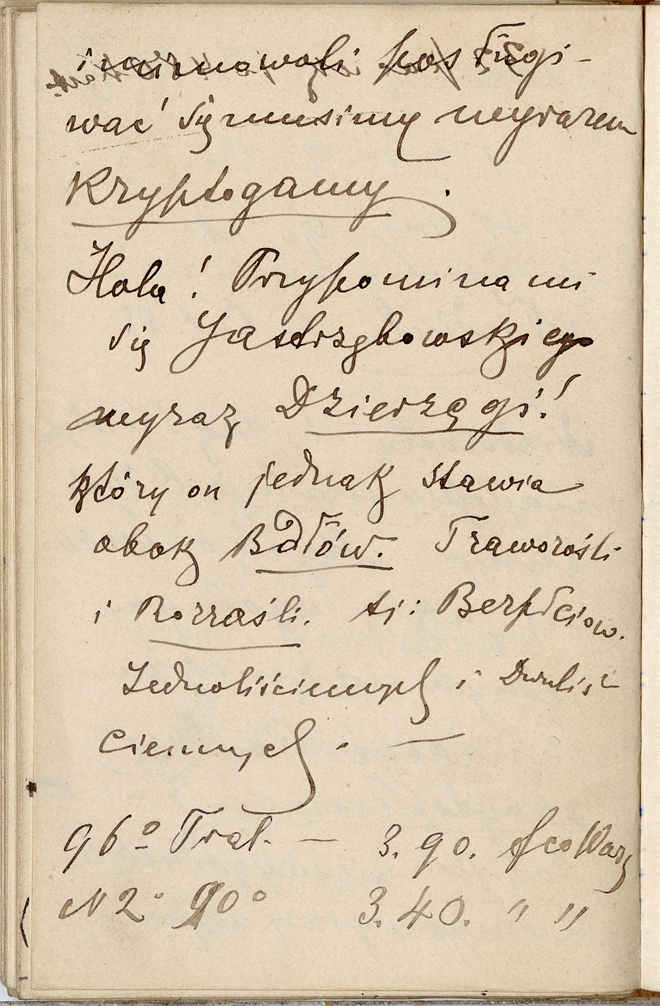 posługi-
wać się musimy wyrazem
Kryptogamy.
Hola! Przypomina mi
się Jastrzębowskiego
wyraz Dzierzęgi!
który on jednak stawia
obok Bdłów. Traworośli
i Rozrośli. tj: Bezpłciow.
Jednoliściennych i Dwuliś-
ciennych. —
96° Tral. — 3.90. fco Warsz
N2° 90° 3.40. " "